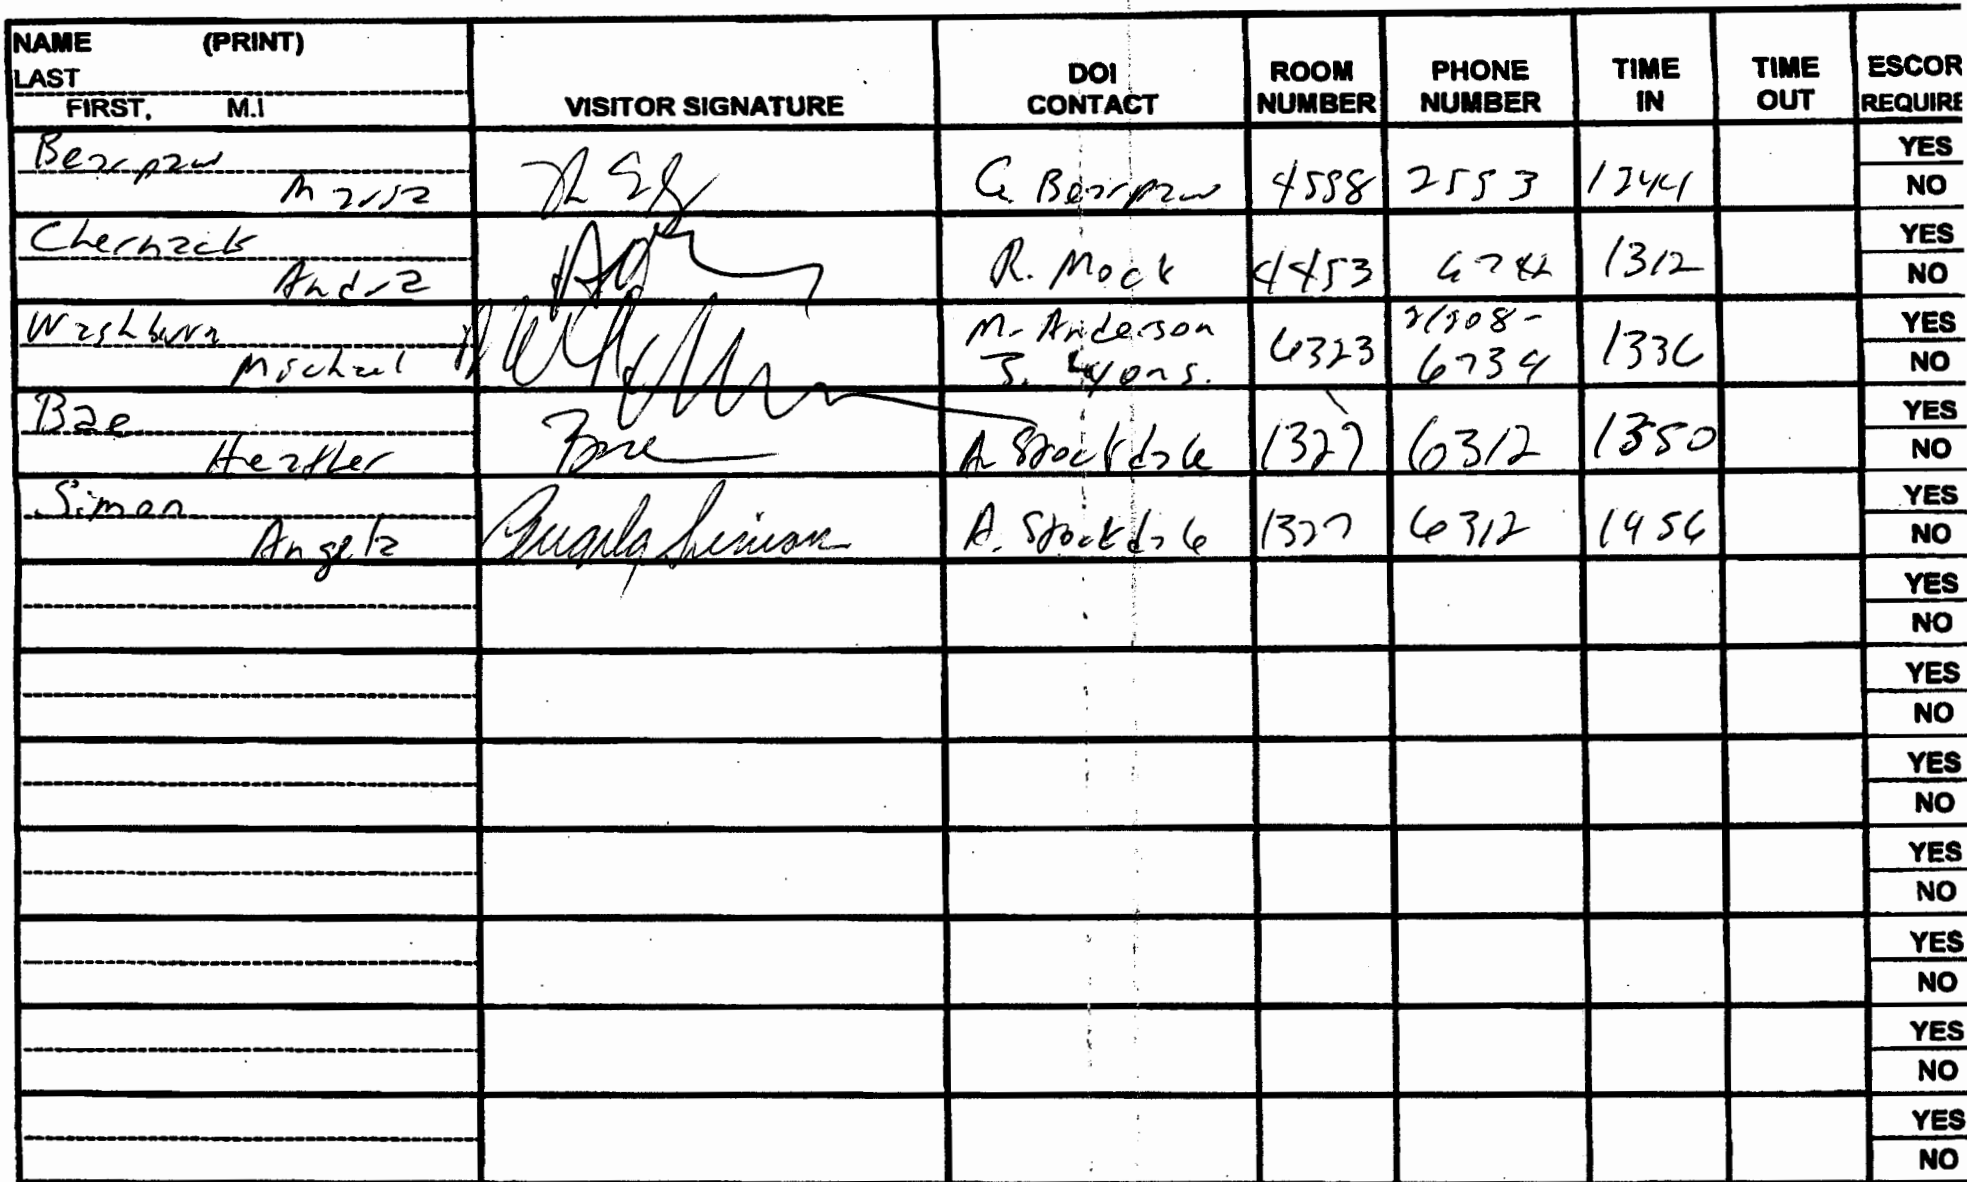 NAME (PRINT)
LAST
FIRST, M.I
VISITOR SIGNATURE
DOI CONTACT
ROOM NUMBER
PHONE NUMBER
TIME IN
TIME OUT
ESCOR
REQUIRE
Bearpaw
C. Bearpaw 4558 2553 1244
YES
NO
Chernack
Andra
R. Mock 4453 1312
YES
NO
Washburn
Michael
M. Anderson
J. Lyons. 6323 6734 1336
YES
NO
Bae
Heather
Bae
A Stockdale 1327 6312 1350
YES
NO
Simon
Angela
Angela Simon
A. Stockdale 1327 6312 1456
YES
NO
YES
NO
YES
NO
YES
NO
YES
NO
YES
NO
YES
NO
YES
NO